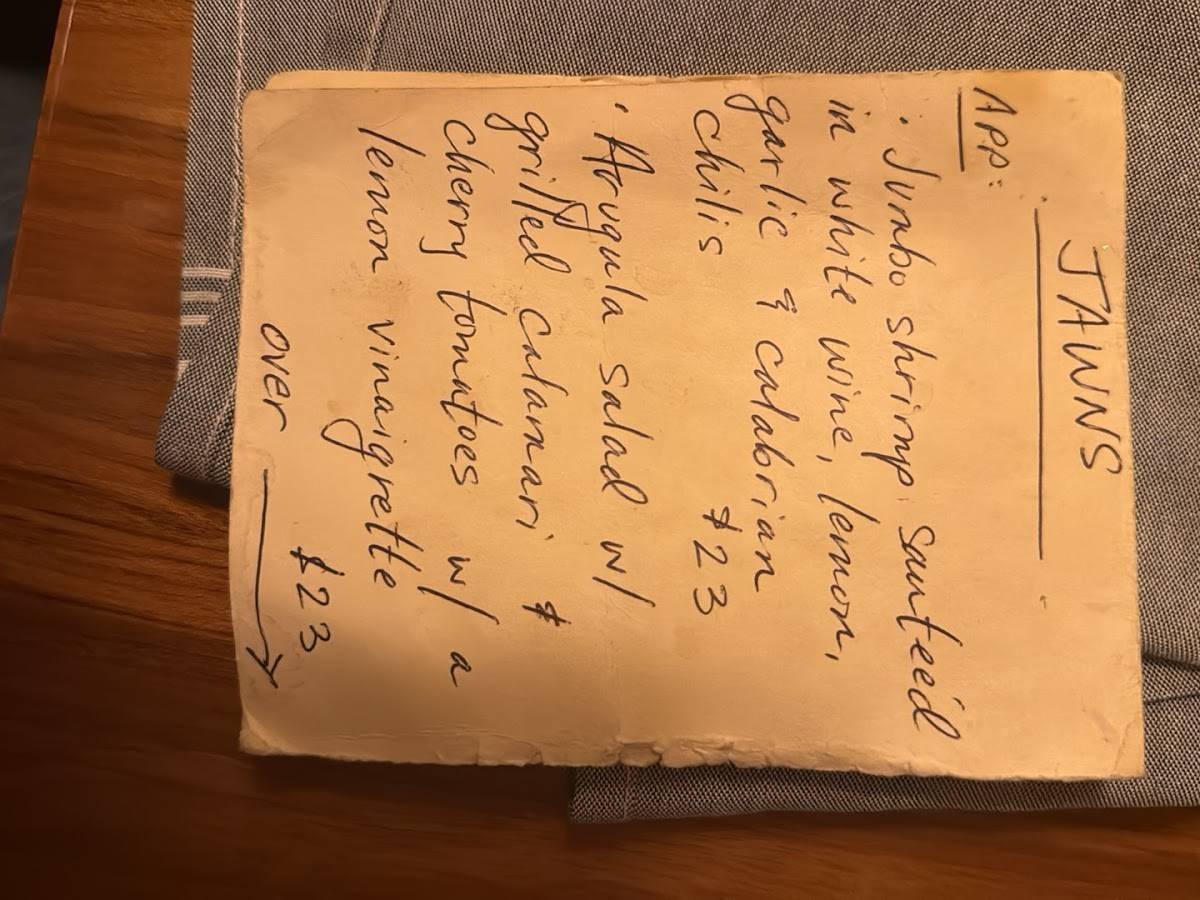 JAWNS
APP:
· Jumbo shrimp sauteéd
in white wine, lemon,
garlic & calabrian
chilis $23
· Arugula salad w/
grilled calamari &
cherry tomatoes w/ a
lemon vinaigrette
$23
over →